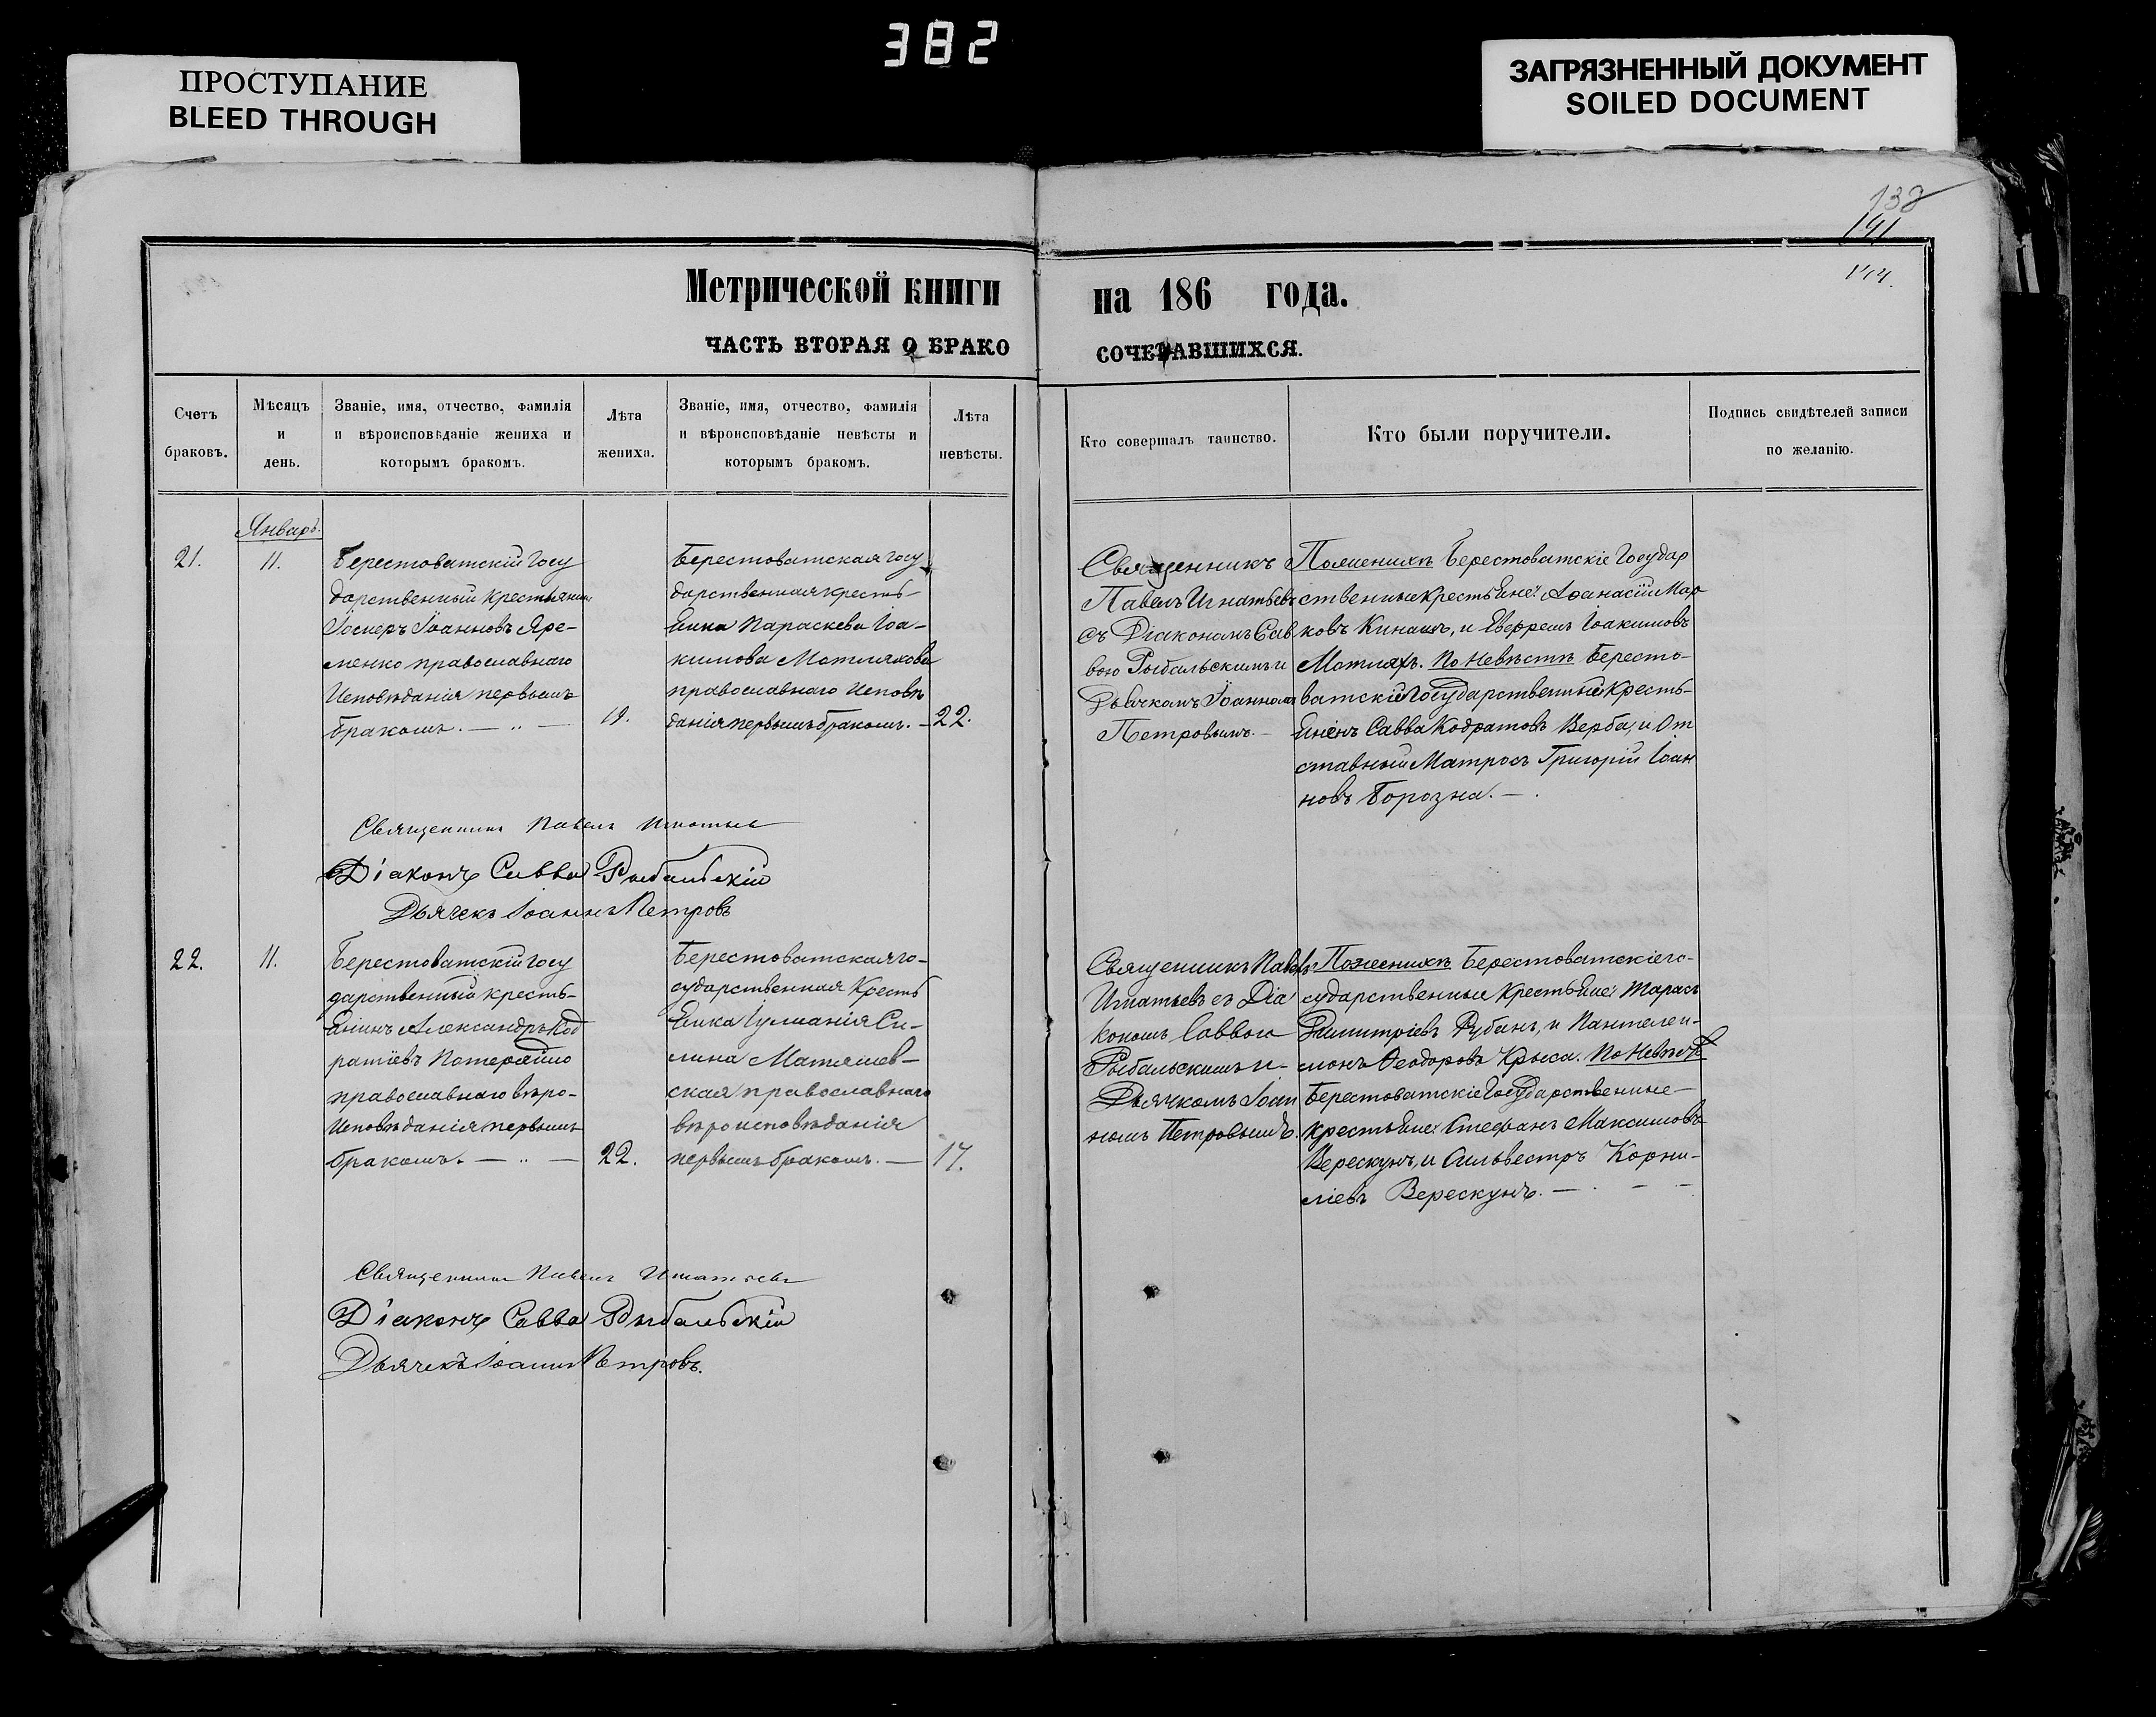 382
ПРОСТУПАНИЕ
BLEED THROUGH
ЗАГРЯЗНЕННЫЙ ДОКУМЕНТ
SOILED DOCUMENT
138
141
Метрической книги на 186 года.
ЧАСТЬ ВТОРАЯ О БРАКО СОЧЕТАВШИХСЯ.
Счетъ
браковъ.
Мѣсяцъ
и
день.
Званіе, имя, отчество, фамилія
и вѣроисповѣданіе жениха и
которымъ бракомъ.
Лѣта
жениха.
Званіе, имя, отчество, фамилія
и вѣроисповѣданіе невѣсты и
которымъ бракомъ.
Лѣта
невѣсты.
Кто совершалъ таинство.
Кто были поручители.
Подпись свидѣтелей записи
по желанію.
Январь.
21.
11.
Берестоватскій Госу
дарственный Крестьянинъ
Іоанновъ Яре-
менко православнаго
Исповѣданія первымъ
бракомъ. — „ —
19.
Берестоватская госу
дарственная кресть-
янка Параскева Іоа-
кимова Мотляхова
православнаго Исповѣ
данія первымъ бракомъ. —
22.
Священникъ
Павелъ Игнатьевъ
съ Діакономъ Сав
вою Рыбальскимъ и
Дьячкомъ Іоанномъ
Петровымъ. —
По женихѣ Берестоватскіе Государ
ственные крестьяне: Аѳанасій Мар
ковъ Кинашъ, и Евфремъ Іоакимовъ
Мотляхъ. По Невѣстѣ Бересто-
ватскій Государственный Кресть-
янинъ Савва Кодратовъ Верба, и От
ставной Матросъ Григорій Іоан
новъ Борозна. — .
Священникъ Павелъ Игнатьев
Діаконъ Савва Рыбальскій
Дьячекъ Іоаннъ Петровъ
22.
11.
Берестоватскій госу
дарственный кресть-
янинъ Александръ Код
ратіевъ
православнаго вѣро-
Исповѣданія первымъ
бракомъ. — „ —
22.
Берестоватская го-
сударственная Кресть
янка Іулианія Си-
лина Матяшев-
ская православнаго
вѣроисповѣданія
первымъ бракомъ. —
17.
Священникъ Павелъ
Игнатьевъ съ Діа
кономъ Саввою
Рыбальскимъ и —
Дьячкомъ Іоан
номъ Петровымъ.
По женихѣ Берестоватскіе го-
сударственные Крестьяне: Тарасъ
Димитріевъ Рубанъ, и Пантелеи-
монъ Ѳеодоровъ Крыса. По Невѣстѣ
Берестоватскіе Государственные —
крестьяне: Стефанъ Максимовъ
Верескунъ, и Сильвестръ Корни-
ліевъ Верескунъ. — . — —
Священникъ Павелъ Игнатьевъ
Діаконъ Савва Рыбальскій
Дьячекъ Іоаннъ Петровъ.